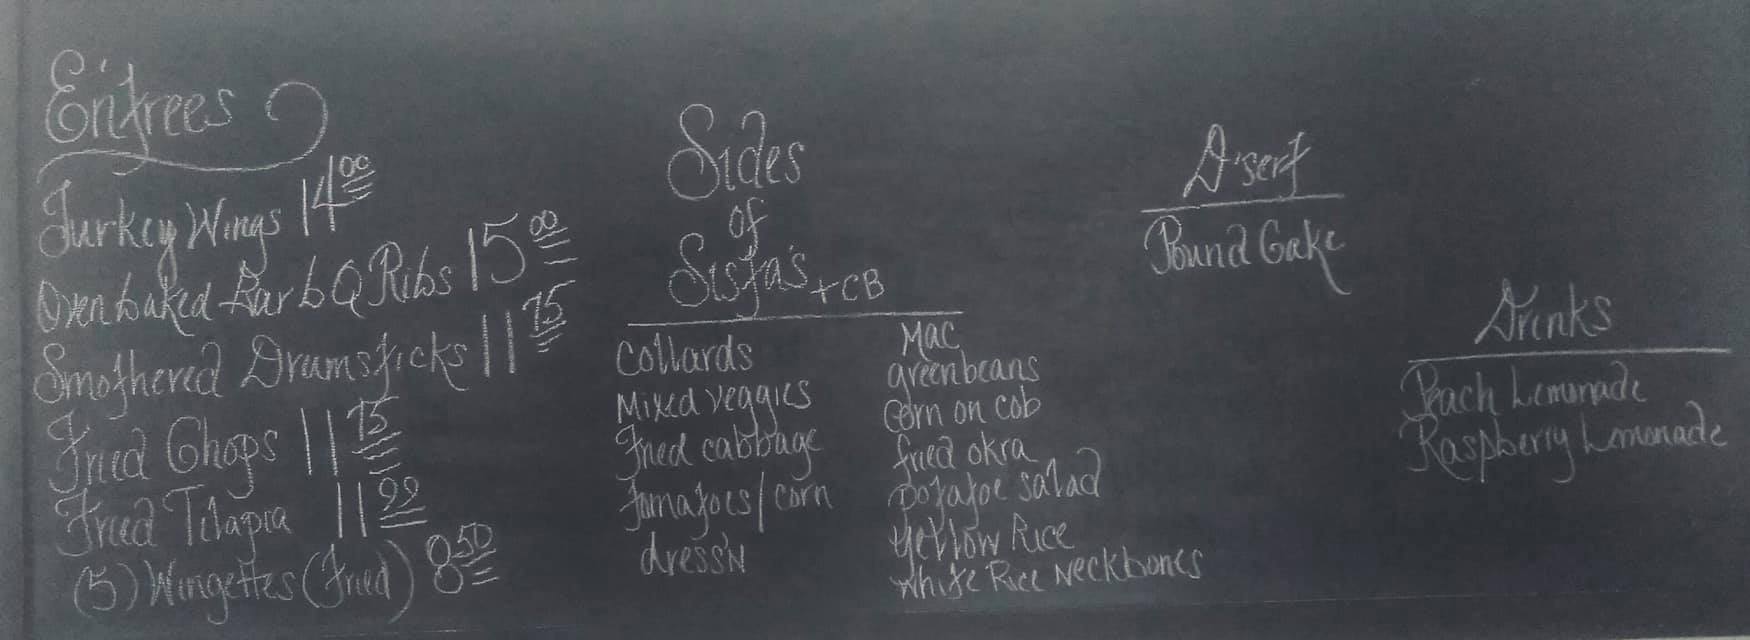 Entrees
Turkey Wings 14.00
Oven baked Bar b Q Ribs 15.00
Smothered Drumsticks 11.75
Fried Chops 11.75
Fried Tilapia 11.99
(5) Wingettes (Fried) 8.50
Sides
of
Sista's + CB
Collards
Mixed veggies
Fried cabbage
Tomatoes/corn
dress'N
Mac
greenbeans
corn on cob
fried okra
potatoe salad
Yellow Rice
White Rice Neckbones
D'sert
Pound Cake
Drinks
Peach Lemonade
Raspberry Lmonade